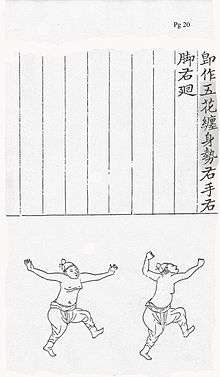 Pg 20
卽作五花纏身勢右手右
脚右廻